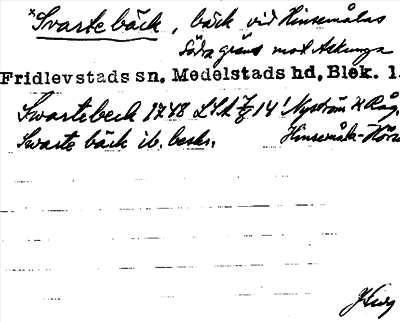 *Svarte bäck, bäck vid Hinsemålas
södra gräns mot Askunga
Fridlevstads sn. Medelstads hd, Blek. l.
Swartebeck 1748 LSA Nyström Råg.
Swarte bäck ib. beskr. Hinsemåla-